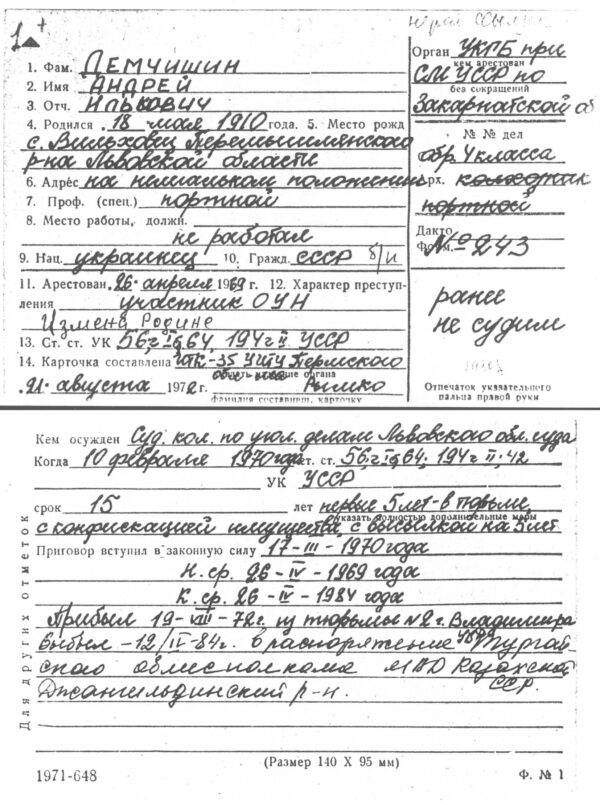 1. Фам. Демчишин
2. Имя Андрей
3. Отч. Илькович
4. Родился 18 мая 1910 года. 5. Место рожд
с. Вильховец Перемышлянского
р-на Львовской области
6. Адрес на нелегальном положении
7. Проф. (спец.) портной
8. Место работы, должн.
не работал
9. Нац. украинец 10. Гражд. СССР б/п
11. Арестован 26 апреля 1969 г. 12. Характер преступ-
ления участник ОУН
Измена Родине
13. Ст. ст. УК 56, ч I, 64, 194 ч II УССР
14. Карточка составлена ИТК-35 УИТУ Пермского
наименование органа
21 августа 1972 г.
фамилия составит. карточку
Орган УКГБ при
кем арестован
СМ УССР по
без сокращений
Закарпатской об
№ № дел
обр. 4 класса
Арх. колхозник
портной
Дакто
Форм. № 243
ранее
не судим
Отпечаток указательного
пальца правой руки
Кем осужден Суд. кол. по угол. делам Львовского обл. суда
Когда 10 февраля 1970 года ст. ст. 56, ч I, 64, 194 ч II, 42
УК УССР
срок 15 лет первые 5 лет - в тюрьме
указать полностью дополнительные меры
с конфискацией имущества, с высылкой на 5 лет
Приговор вступил в законную силу 17-III-1970 года
Н. ср. 26-IV-1969 года
К. ср. 26-IV-1984 года
Прибыл 19-VIII-72г. из тюрьмы №2 г. Владимира
Выбыл -12/IV-84г. в распоряжение УВД Тургай
ского облисполкома МВД Казахской
ССР.
Джангильдинский р-н.
Для других отметок
(Размер 140 X 95 мм)
1971-648
Ф. № 1